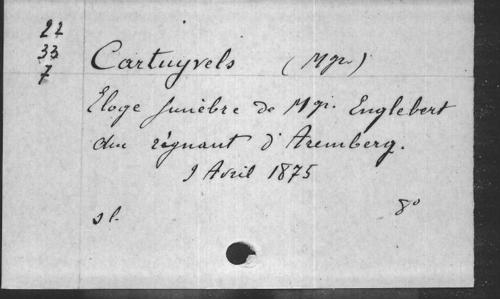 22
33
7
Cartuyvels (Mgr.)
Eloge funèbre de Mgr. Englebert
duc régnant d'Aremberg.
9 Avril 1875
sl. 8°